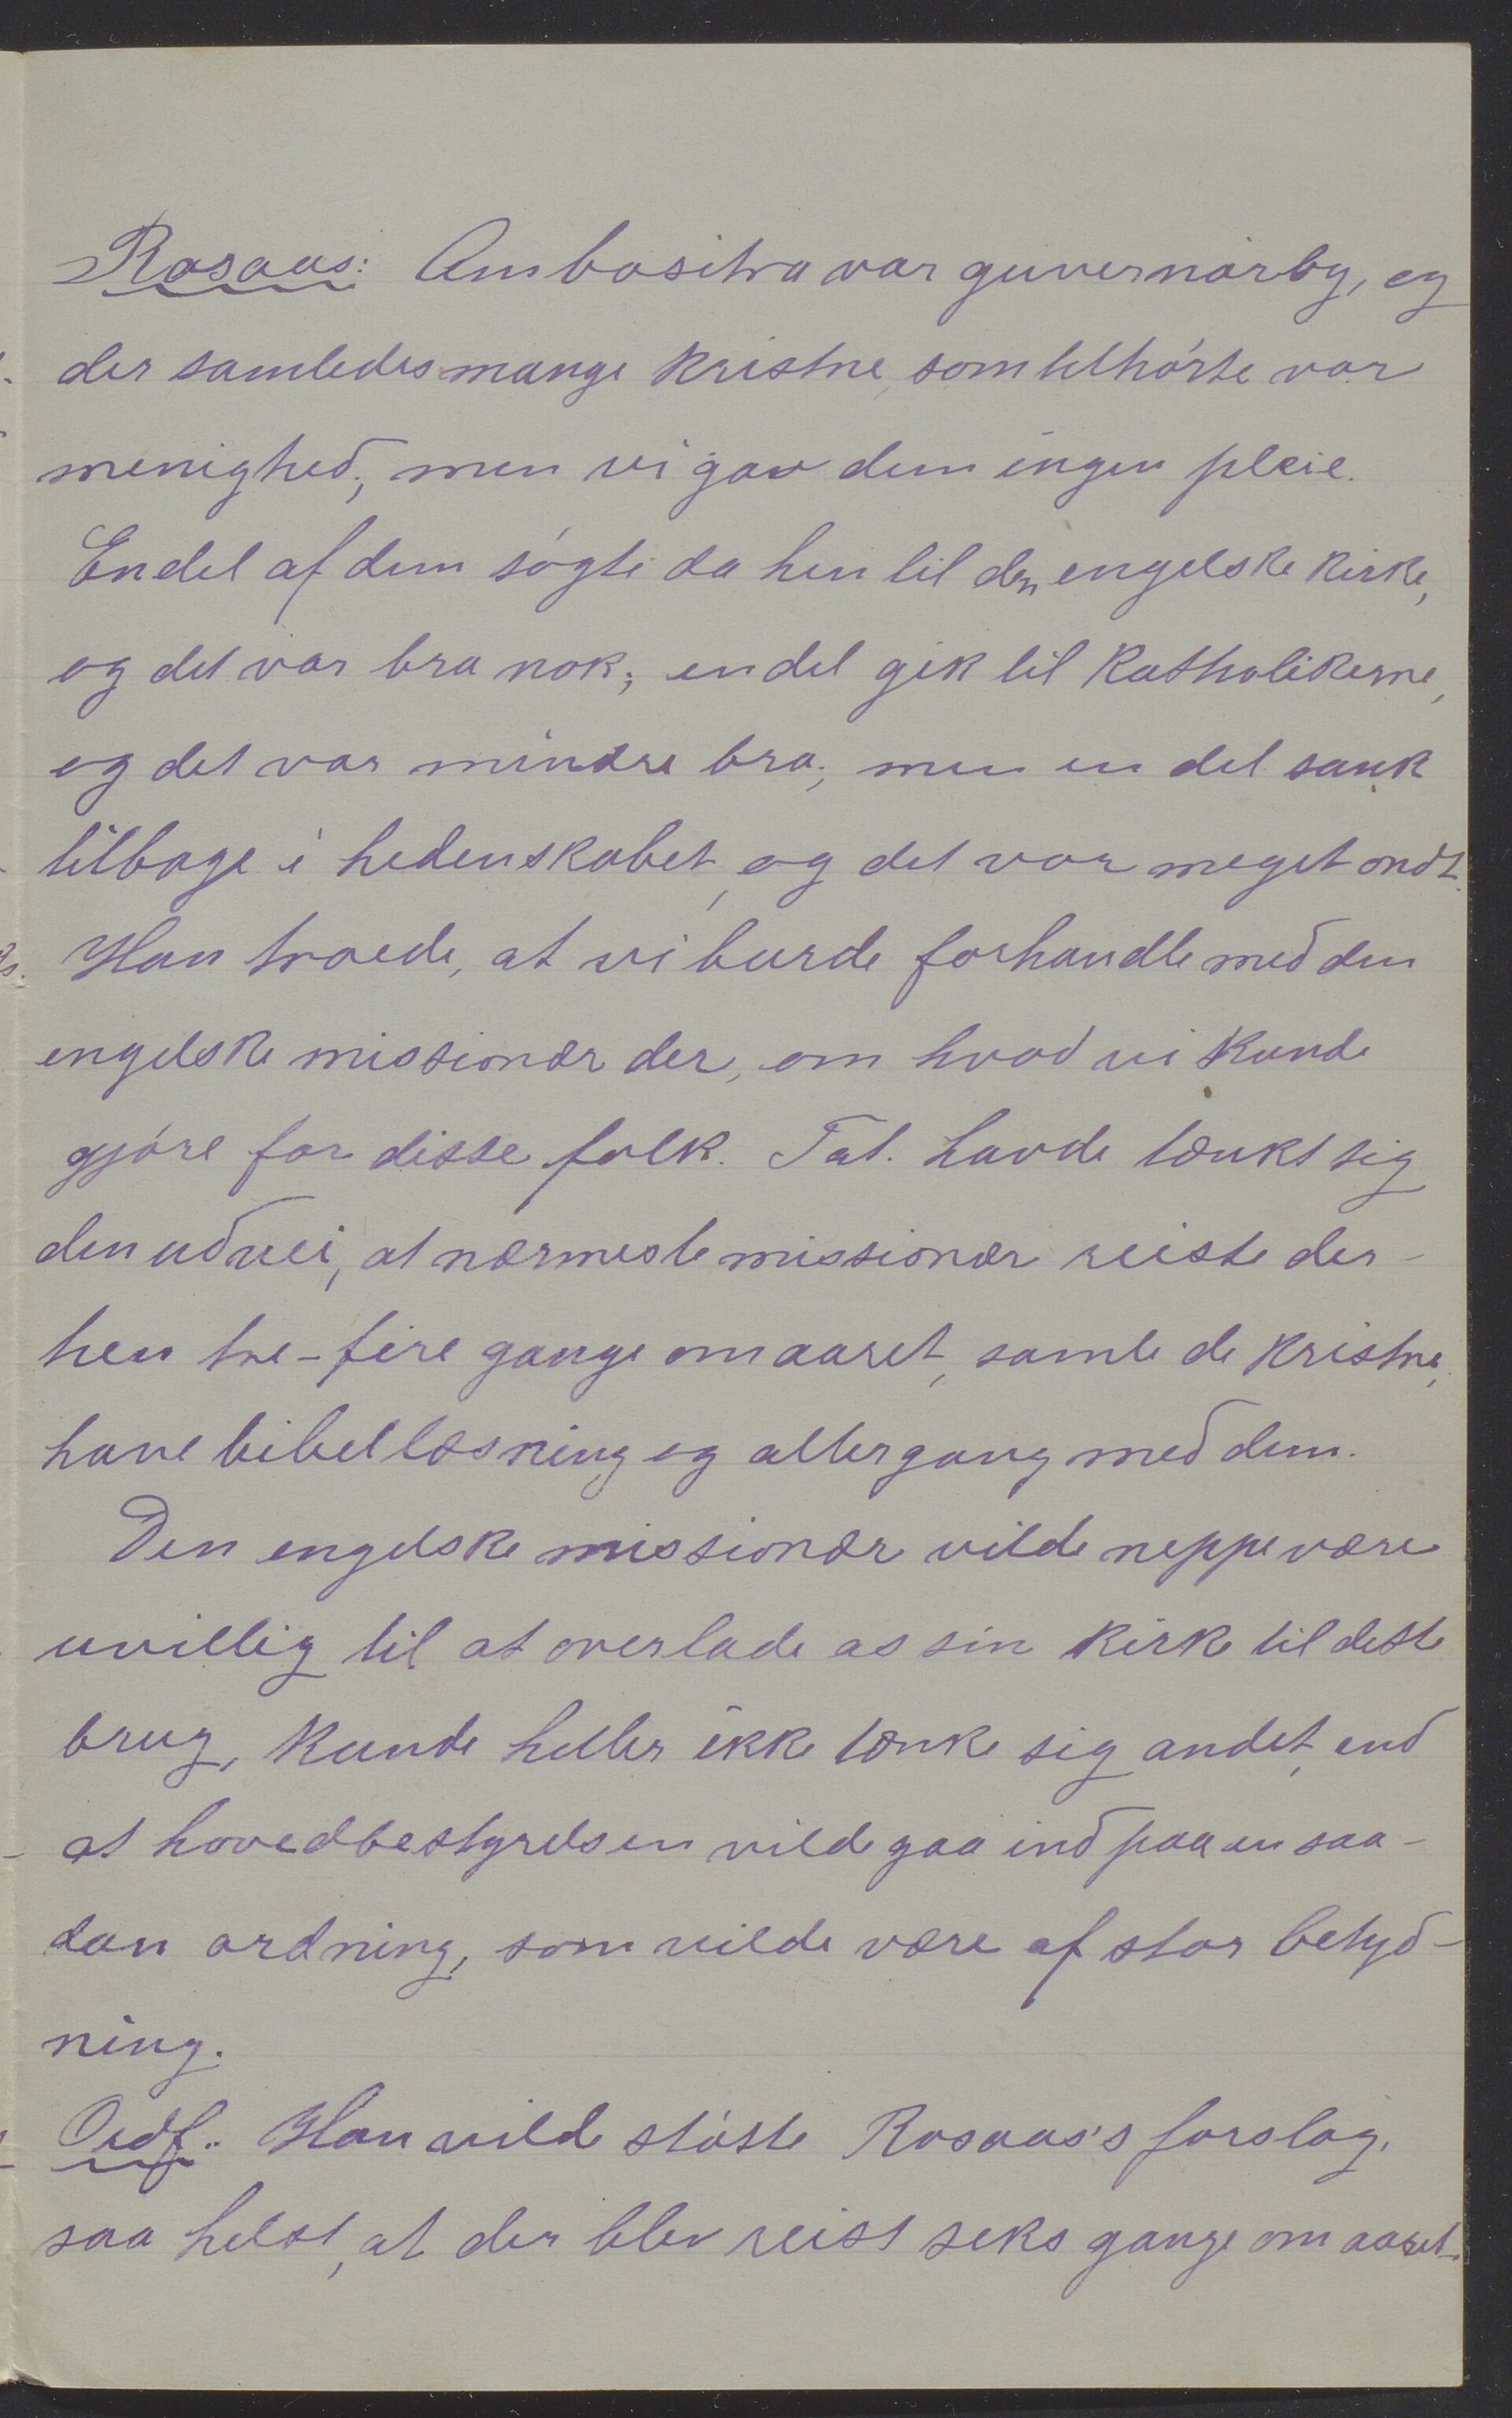 Rosaas: Ambositra var guvernörby, og
der samledes mange kristne, som tilhörte vor
menighed, men vi gav dem ingen pleie.
Endel af dem sögte da hen til den engelske kirke,
og det var bra nok; endel gik til katholikerne,
og det var mindre bra; men en del sank
tilbage i hedenskabet, og det var meget ondt.
Han troede, at vi burde forhandle med den
engelske missionær der, om hvad vi kunde
gjöre for disse folk. Tal. havde tænkt sig
den udvei, at nærmeste missionær reiste der-
hen tre-fire gange om aaret, samle de kristne,
have bibellæsning og altergang med dem.
Den engelske missionær vilde neppe være
uvillig til at overlade os sin kirke til dette
brug, kunde heller ikke tænke sig andet, end
at hovedbestyrelsen vilde gaa ind paa en saa-
dan ordning, som vilde være af stor betyd-
ning.
Ordf.: Han vilde stötte Rosaas's forslag,
saa helst, at der blev reist seks gange om aaret.